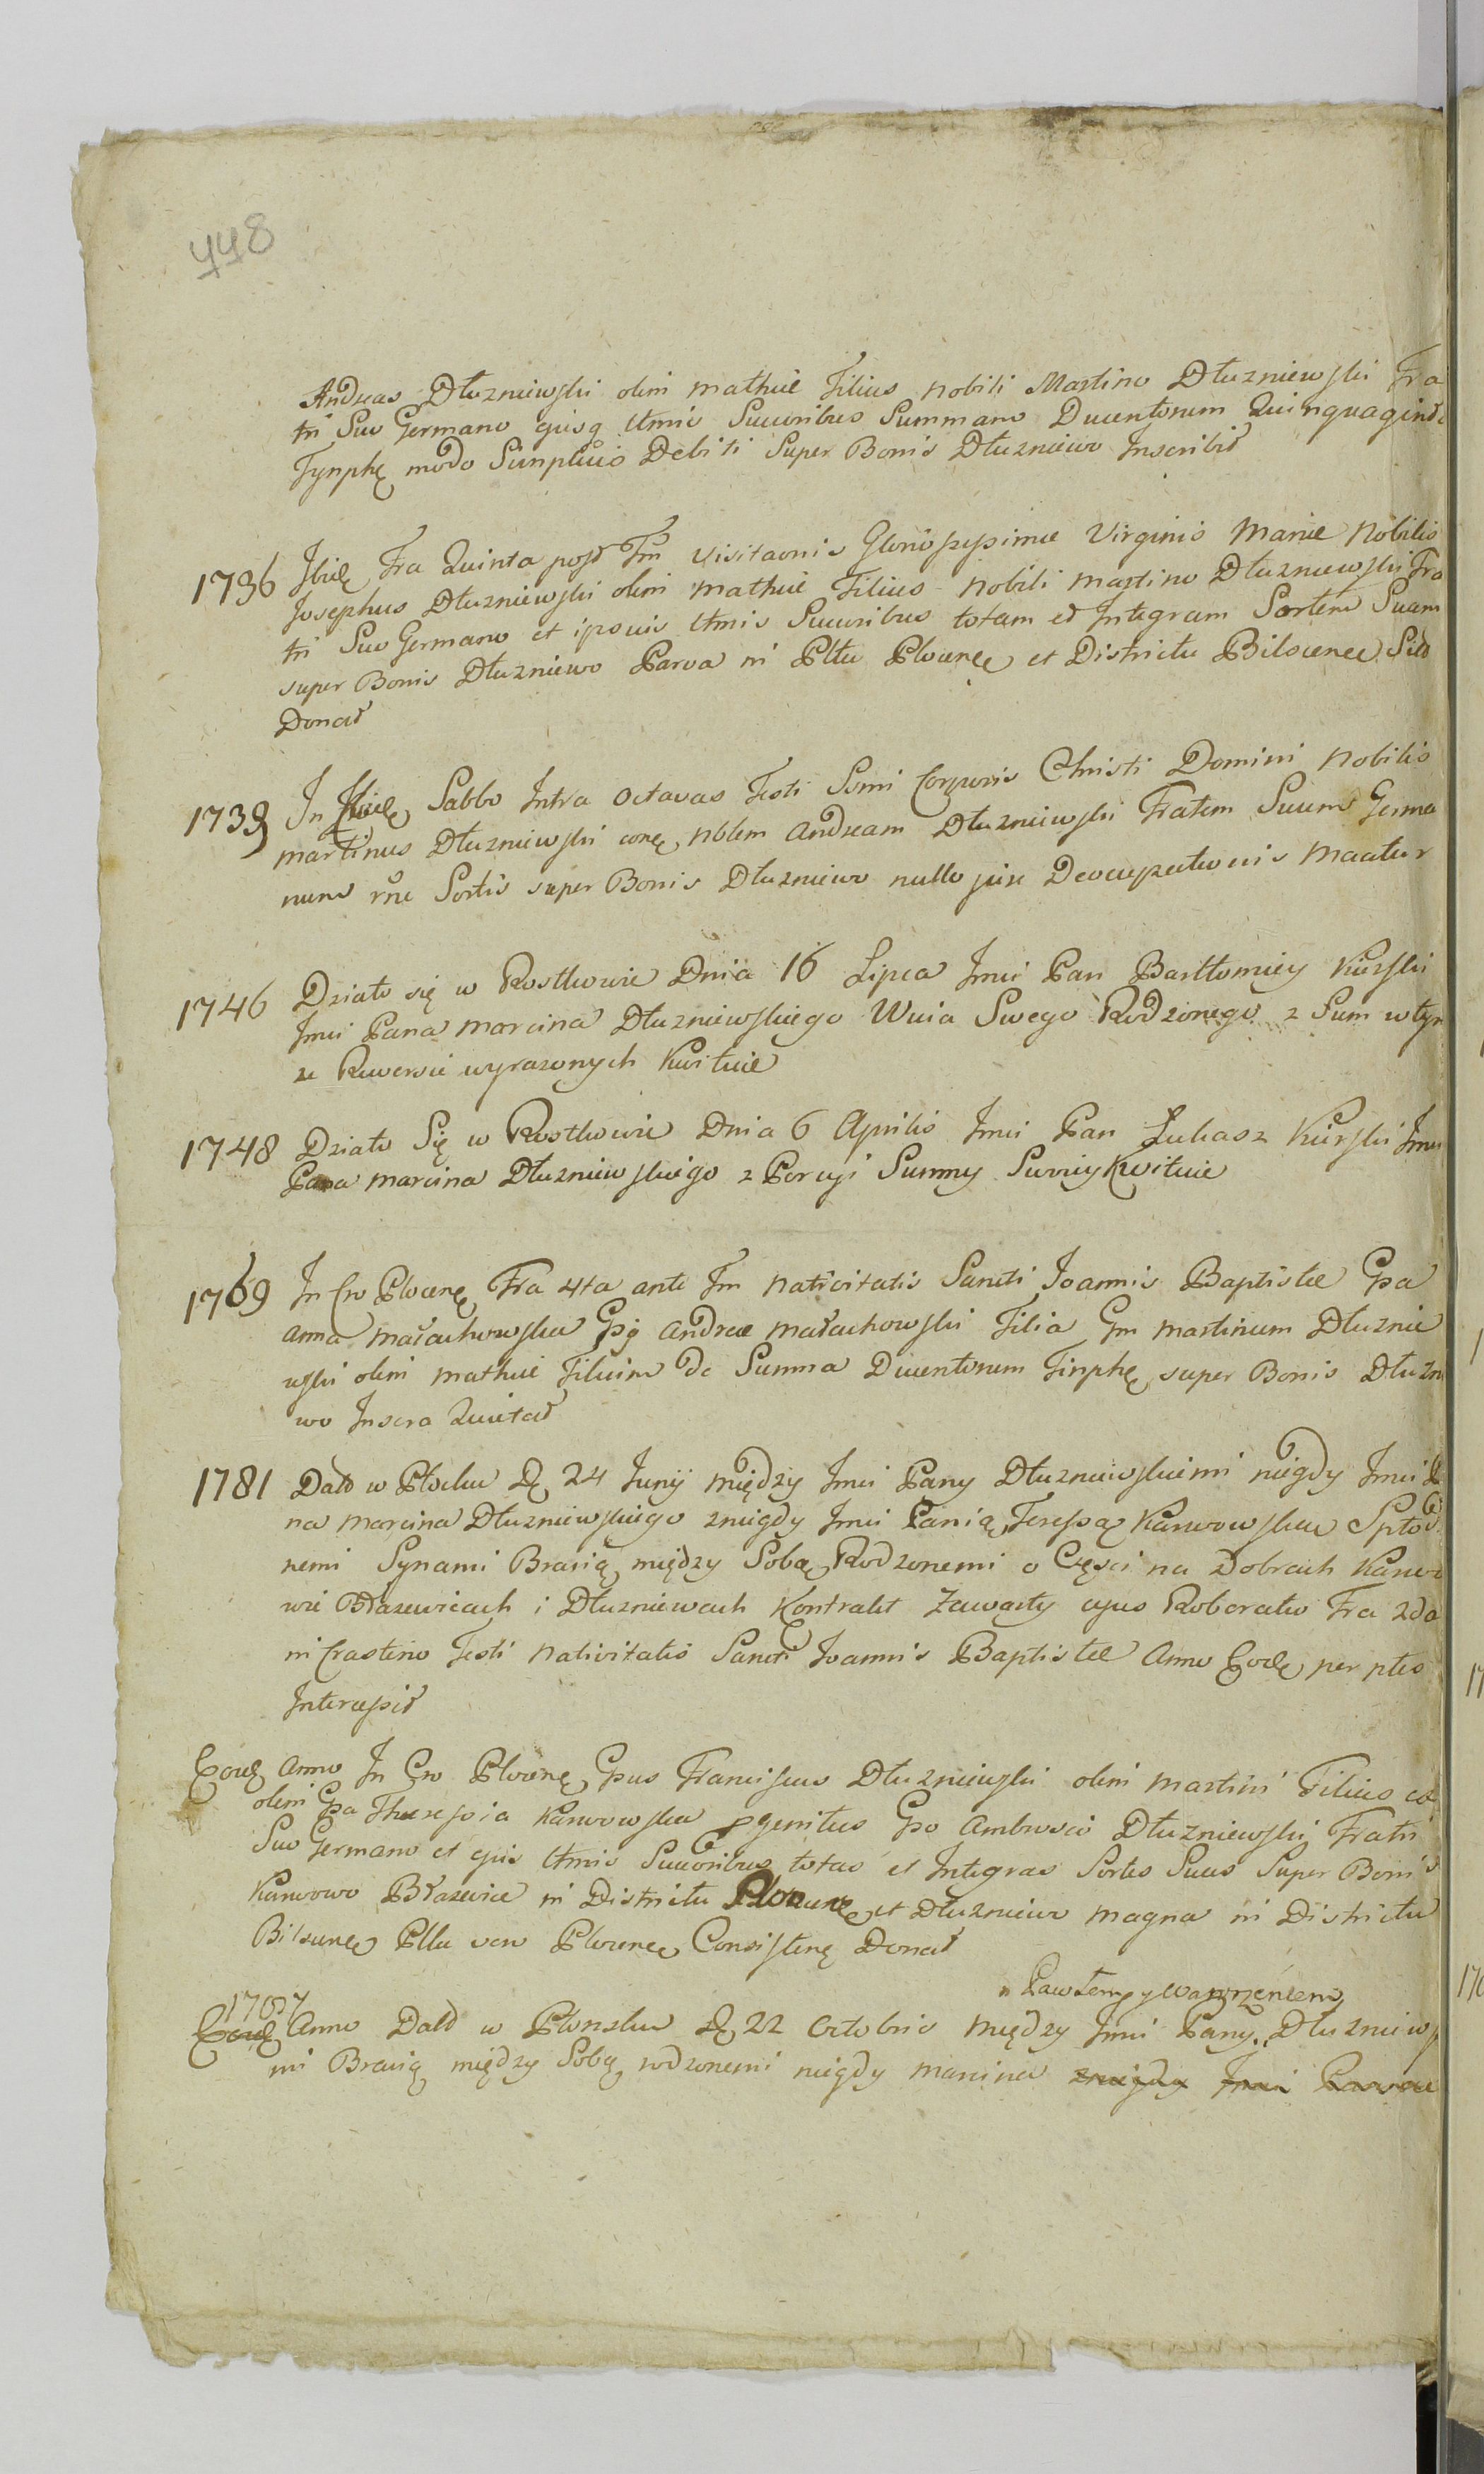 448
Andreas Dłuzniewski olim Mathiæ Filius Nobili Martino Dłuzniewski Fra
tri Suo Germano ejusq ltmis Succoribus Summam Ducentorum Quinquaginta
Tynphę modo Simplicis Debiti Super Bonis Dłuzniewo Inscribit
1736 Ibidę Fra Quinta post Fm Visitaonis Gloriosyssimæ Virginis Mariæ Nobilis
Josephus Dłuzniewski olim Mathiæ Filius Nobili Martino Dłuzniewski Fra
tri Suo Germano et ipsius ltmis Succoribus totam et Integram Sortem Suam
super Bonis Dłuzniewo Parva in Pltu Plocenę et Districtu Bilscenee Sitd
Donat
1739 In Ibidę Sabbo Intra Octavas Festi Ssmi Corporis Christi Domini Nobilis
Martinus Dłuzniewski conę Nblem Andream Dłuzniewski Fratem Suum Germa
num rne Sortis super Bonis Dłuzniewo nullo jure Deocupatucis Maatur
1746 Działo się w Rostkowie Dnia 16 Lipca Jmć Pan Bartłomiey Kurski
Jmci Pana Marcina Dłuzniewskiego Wuia Swego Rodzonego z Sum w tym
ze Rewersie wyrazonych Kwituie
1748 Działo Się w Rostkowie Dnia 6 Aprilis Jmci Pan Łukasz Kurski Jmci
Pana Marcina Dłuzniewskiego z Porcyi Summy Swoiey Kwituie
1769 In Cro Plocenę Fra 4ta ante Fm Nativitatis Sancti Joannis Baptistæ Gsa
Anna Małachowska Gsi Andreæ Małachowski Filia Gm Martinum Dłuznie
wski olim Mathiæ Filium de Summa Ducentorum Tinphę super Bonis Dłuzn
wo Inscra Quietat
1781 Datd w Płocku D 24 Junij między Jmci Pany Dłuzniewskiemi niegdy Jmci P
na Marcina Dłuzniewskiego zniegdy Jmci Panią Teressą Karwowska Spłod
nemi Synami Bracią między Sobą Rodzonemi o Częsci na Dobrach Karwo
wie Błazewicach i Dłuzniewach Kontrakt Zawarty cyus Roboratio Fra 2da
in Crastino Festi Nativitatis Sancti Joannis Baptistæ Anno Eodę per ptes
Intercessit
Eodę Anno In Cro Plocenę Gsus Franciscus Dłuzniewski olim Martini Filius ex
olim Gsa Theressia Karwowska pgenitus Gso Ambrosio Dłuzniewski Fratri
Suo Germano et ejus ltmis Succoribus totas et Integras Sortes Suas Super Bonis
Karwowo Błazewice in Districtu Plocenę et Dłuzniewo Magna in Districtu
Bilscenę Pltu vero Plocenee Consistenę Donat
Pawłem y Wawrzencem
Eodę Anno Datd w Płonsku D 22 Octobris między Jmci Pany Dłuzniews
mi Bracią między Sobą rodzonemi niegdy Marcina zniegdy Jmci